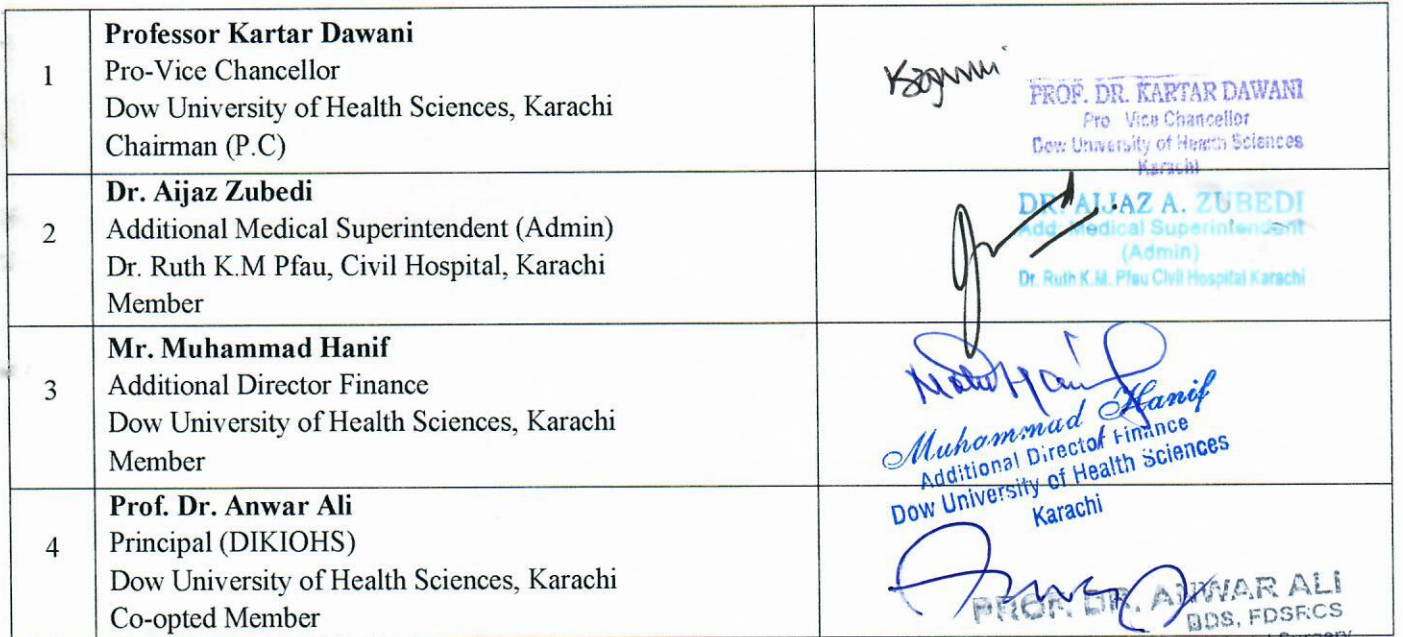 1
Professor Kartar Dawani
Pro-Vice Chancellor
Dow University of Health Sciences, Karachi
Chairman (P.C)
PROF. DR. KARTAR DAWANI
Pro Vice Chancellor
Dow University of Health Sciences
Karachi
2
Dr. Aijaz Zubedi
Additional Medical Superintendent (Admin)
Dr. Ruth K.M Pfau, Civil Hospital, Karachi
Member
DR. AIJAZ A. ZUBEDI
Add: Medical Superintendent
(Admin)
Dr. Ruth K.M. Pfau Civil Hospital Karachi
3
Mr. Muhammad Hanif
Additional Director Finance
Dow University of Health Sciences, Karachi
Member
Muhammad Hanif
Additional Director Finance
Dow University of Health Sciences
Karachi
4
Prof. Dr. Anwar Ali
Principal (DIKIOHS)
Dow University of Health Sciences, Karachi
Co-opted Member
PROF. DR. ANWAR ALI
BDS, FDSRCS
Surgery